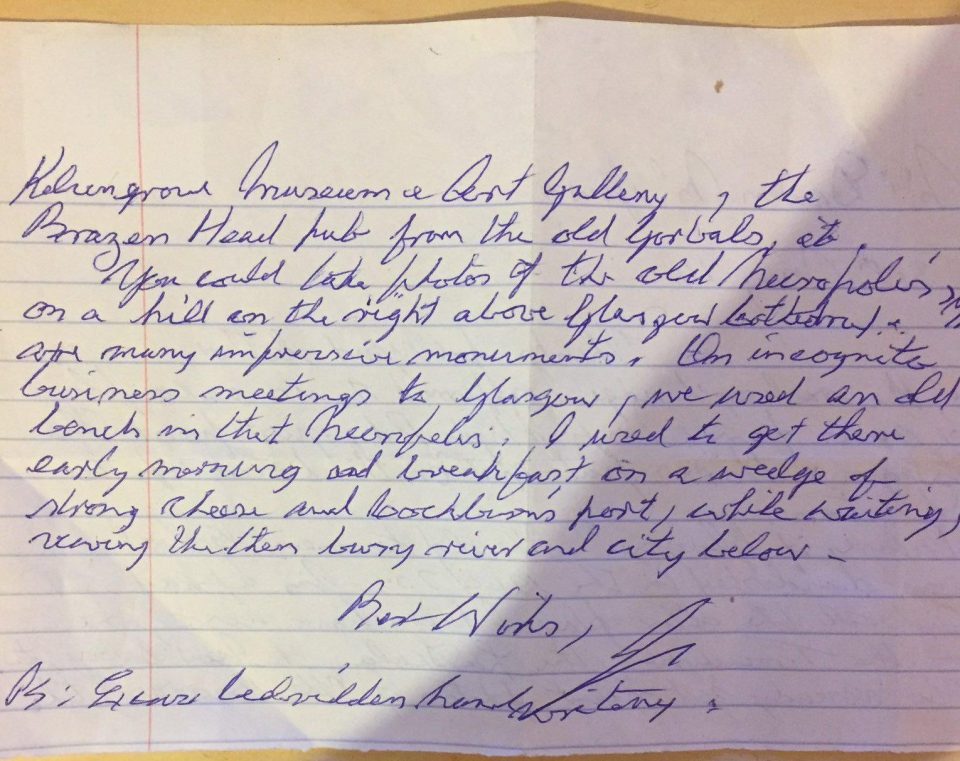 Kelvingrove Museum & Art Gallery, the
Brazen Head pub from the old Gorbals, etc.
You could take photos of the old Necropolis,
on a hill on the "right" above Glasgow Cathedral.
are many impressive monuments. On incognito
business meetings to Glasgow, we used an old
bench in that Necropolis. I used to get there
early morning and breakfast on a wedge of
strong cheese and Cockburn's port, while waiting,
viewing the then busy river and city below.
Best Wishes,
Ps: Excuse bedridden handwriting.